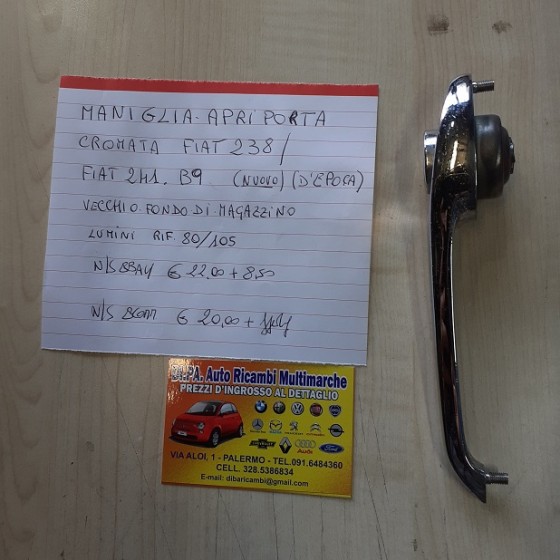 MANIGLIA APRI PORTA
CROMATA FIAT 238/
FIAT 241. B9 (NUOVO) (D'EPOCA)
VECCHIO FONDO DI MAGAZZINO
LUMINI RIF. 80/105
N/S EBAY € 22,00 + 8,50
N/S € 20,00 +
Auto Ricambi Multimarche
PREZZI D'INGROSSO AL DETTAGLIO
Audi Ford
VIA ALOI, 1 - PALERMO - TEL.091.6484360
CELL. 328.5386834
E-mail: dibaricambi@gmail.com